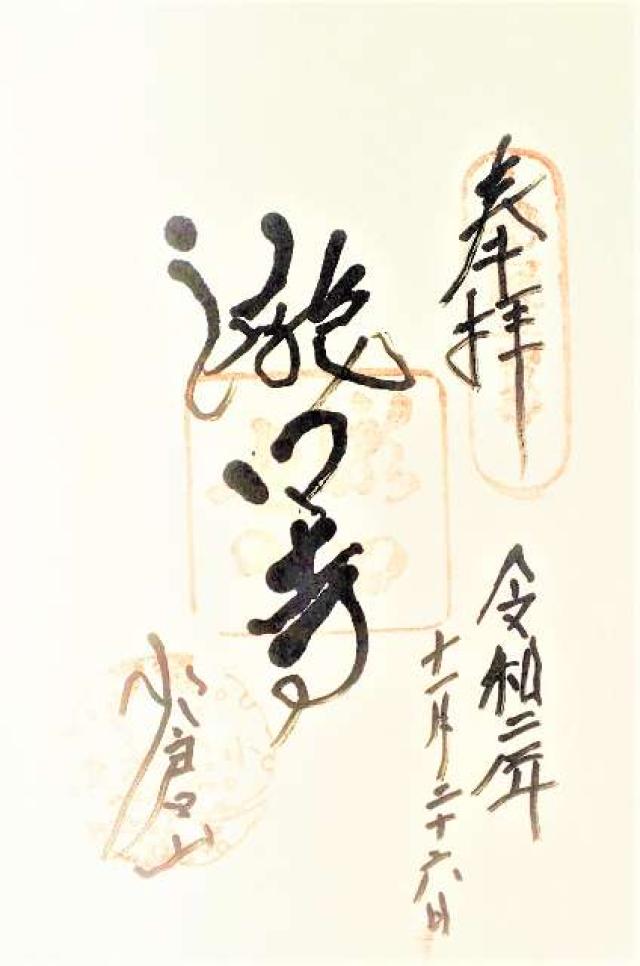 奉拝
令和二年
十一月二十六日
瀧口寺
小倉山